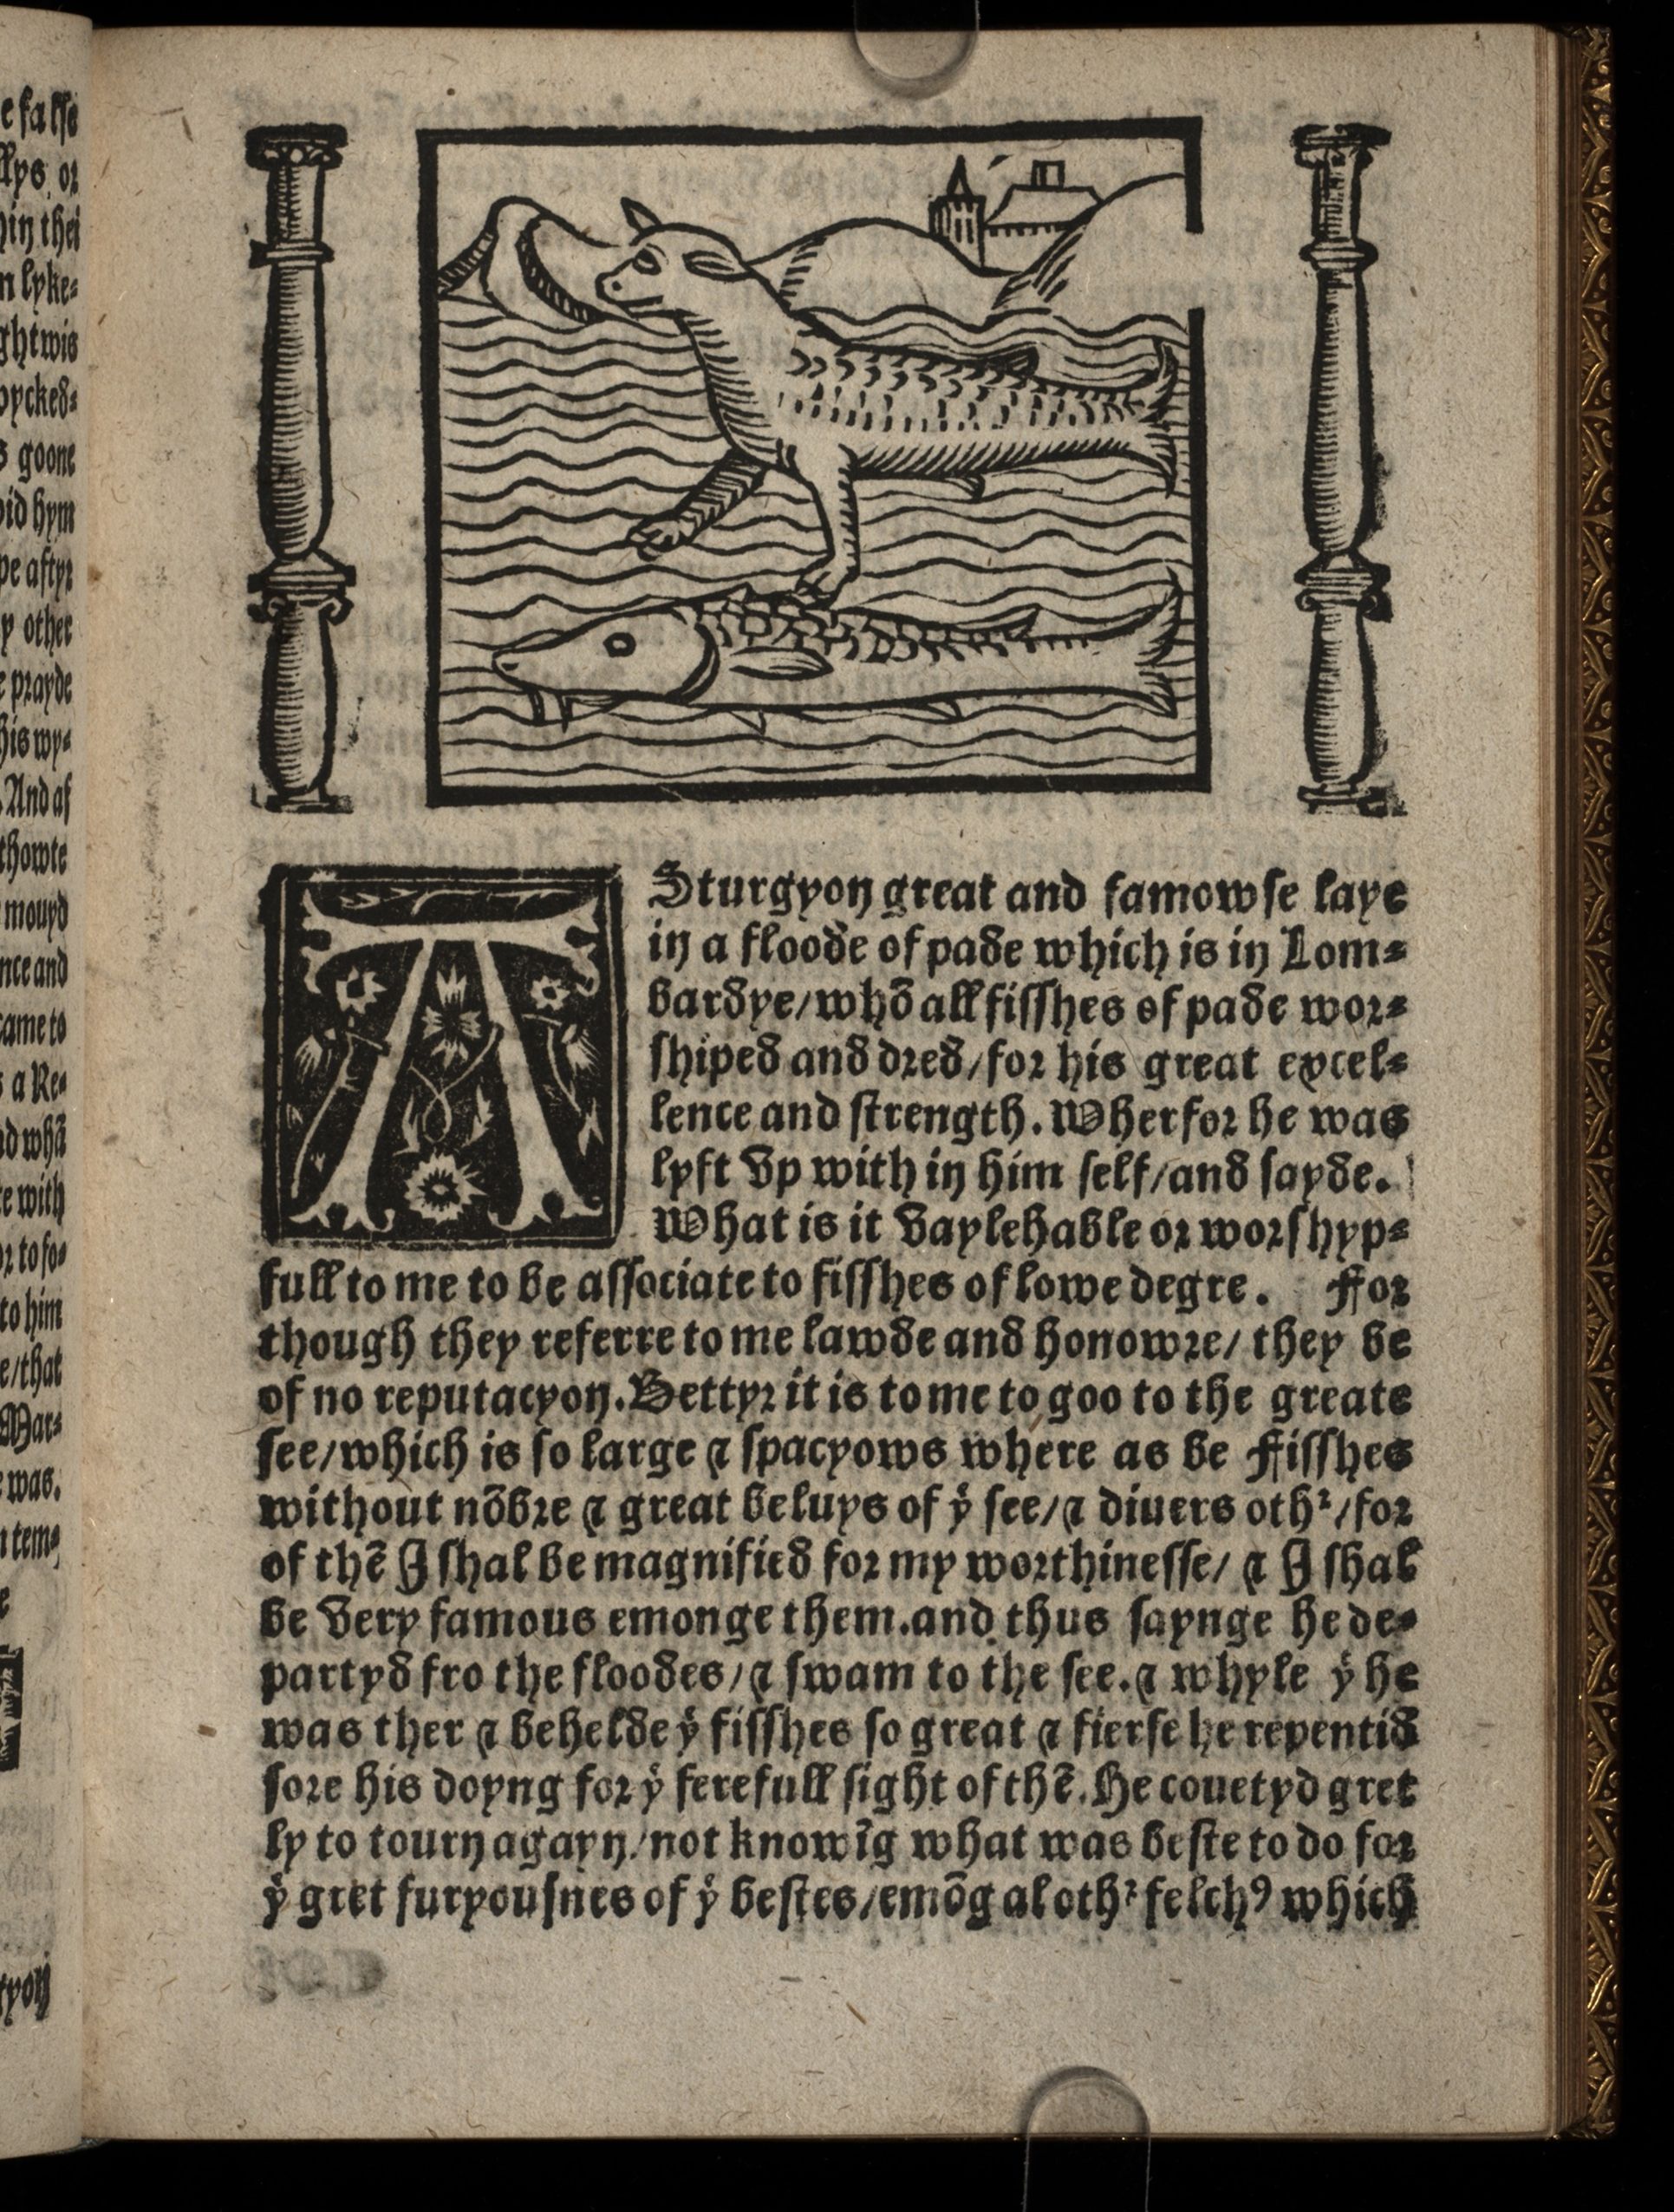 e false
llys or
hin thei
n lyke⸗
ghtwis
s goone
oid hym
pe aftyr
y other
e prayde
his wy⸗
.And af
thowte
mouyd
nce and
came to
s a Re⸗
nd whā
te with
or to fo⸗
to him
e/that
Mar⸗
e was.
n tem⸗
A Sturgyon great and famowſe laye
in a floode of pade which is in Lom⸗
bardye/whō all fiſſhes of pade wor⸗
ſhiped and dred/for his great excel⸗
lence and ſtrength. Wherfor he was
lyft vp with in him ſelf/and ſayde.
What is it vaylehable or worſhyp⸗
full to me to be aſſociate to fiſſhes of lowe degre. For
though they referre to me lawde and honowre/ they be
of no reputacyon. Bettyr it is to me to goo to the greate
ſee/which is ſo large ⁊ ſpacyows where as be Fiſſhes
without nōbre ⁊ great beluys of yͤ ſee/⁊ diuers othꝛ/for
of thē I ſhal be magnified for my worthineſſe/ ⁊ I ſhal
be very famous emonge them.and thus ſaynge he de⸗
partyd fro the floodes/⁊ ſwam to the ſee.⁊ whyle yͤ he
was ther ⁊ behelde yͤ fiſſhes ſo great ⁊ fierſe he repentid
ſore his doyng for yͤ ferefull ſight of thē. He couetyd gret
ly to tourn agayn/not knowīg what was beſte to do for
yͤ gret furyouſnes of yͤ beſtes/emōg al othꝛ felchꝰ which